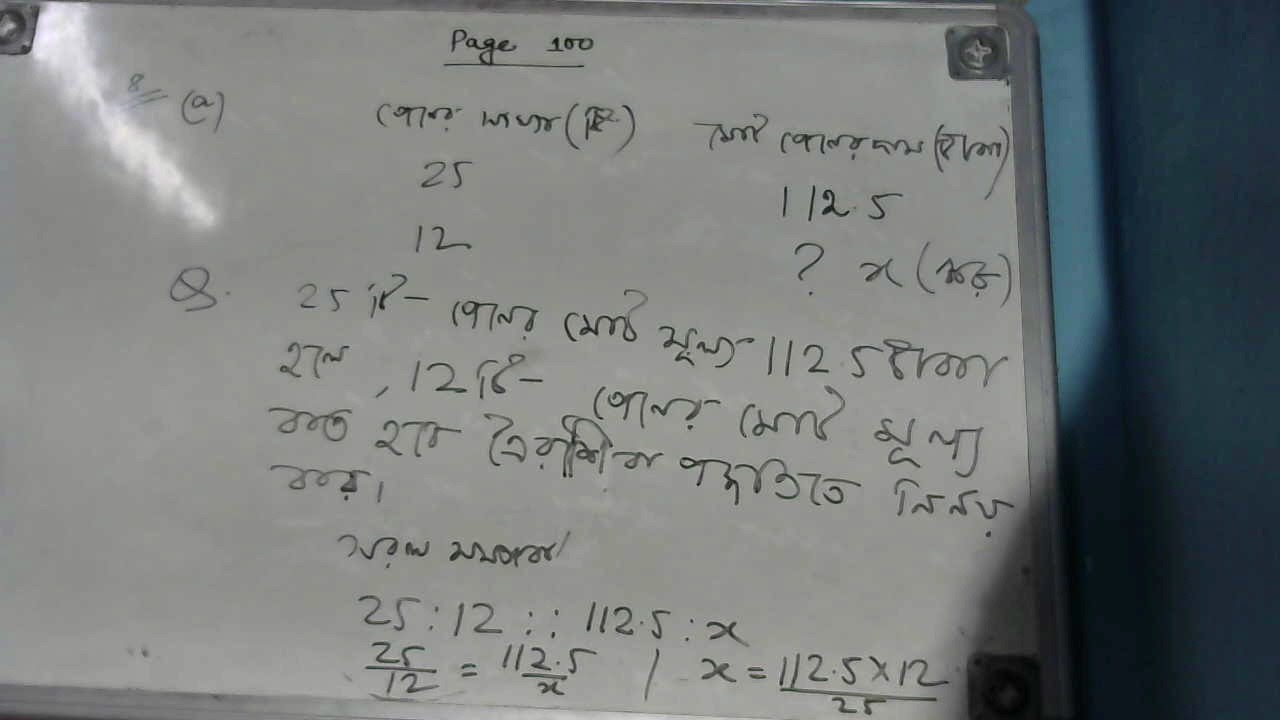 Page 100
8 (a) পেনের সংখ্যা (টি) মোট পেনের দাম (টাকা)
25 112.5
12 ? x (ধরি)
Q. 25 টি পেনের মোট মূল্য 112.5 টাকা
হলে, 12 টি পেনের মোট মূল্য
কত হবে ত্রৈরাশিক পদ্ধতিতে নির্নয়
কর।
সরল সম্পর্ক।
25 : 12 :: 112.5 : x
25/12 = 112.5/x | x = 112.5 × 12/25